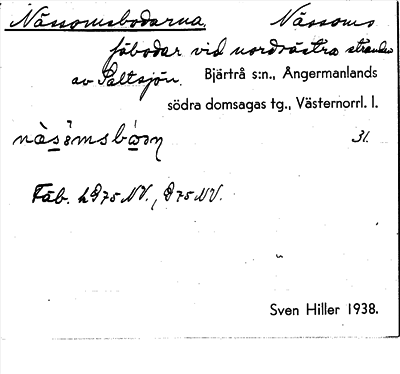 Nässomsbodarna Nässoms
fäbodar vid nordvästra stranden
av Saltsjön. Bjärtrå s:n., Ångermanlands
södra domsagas tg., Västernorrl. l.
31.
Fäb. h D75 NV., D75 NV.
Sven Hiller 1938.